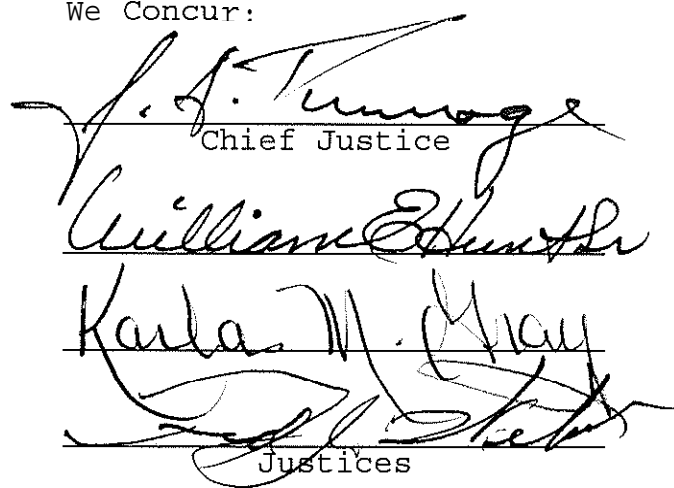 We Concur:
J. A. Turnage
Chief Justice
William E Hunt Sr
Karla M. Gray
Justices